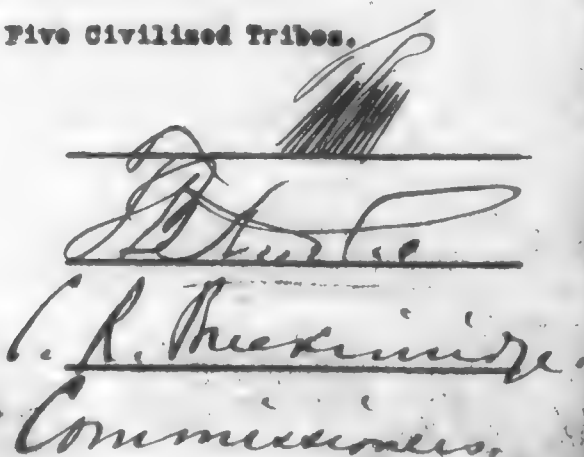 Five Civilised Tribes.
C. R. Breckinridge.
Commissioners.